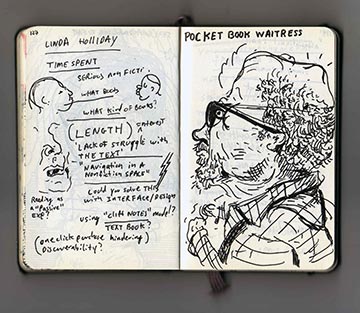 LINDA HOLLIDAY
TIME SPENT
SERIOUS NON FICTI
WHAT BOOKS
WHAT KIND OF BOOKS?
(LENGTH) INTEREST
LACK OF STRUGGLE WITH
THE TEXT
"NAVIGATION IN A
NONFICTION SPACE"
COULD YOU SOLVE THIS
WITH INTERFACE/DESIGN
READING AS
A "PASSIVE"
EXP?
USING "CLIFF NOTES" MODEL?
TEXT BOOK?
(ONE CLICK PURCHASE HINDERING)
DISCOVERABILITY?
POCKET BOOK WAITRESS